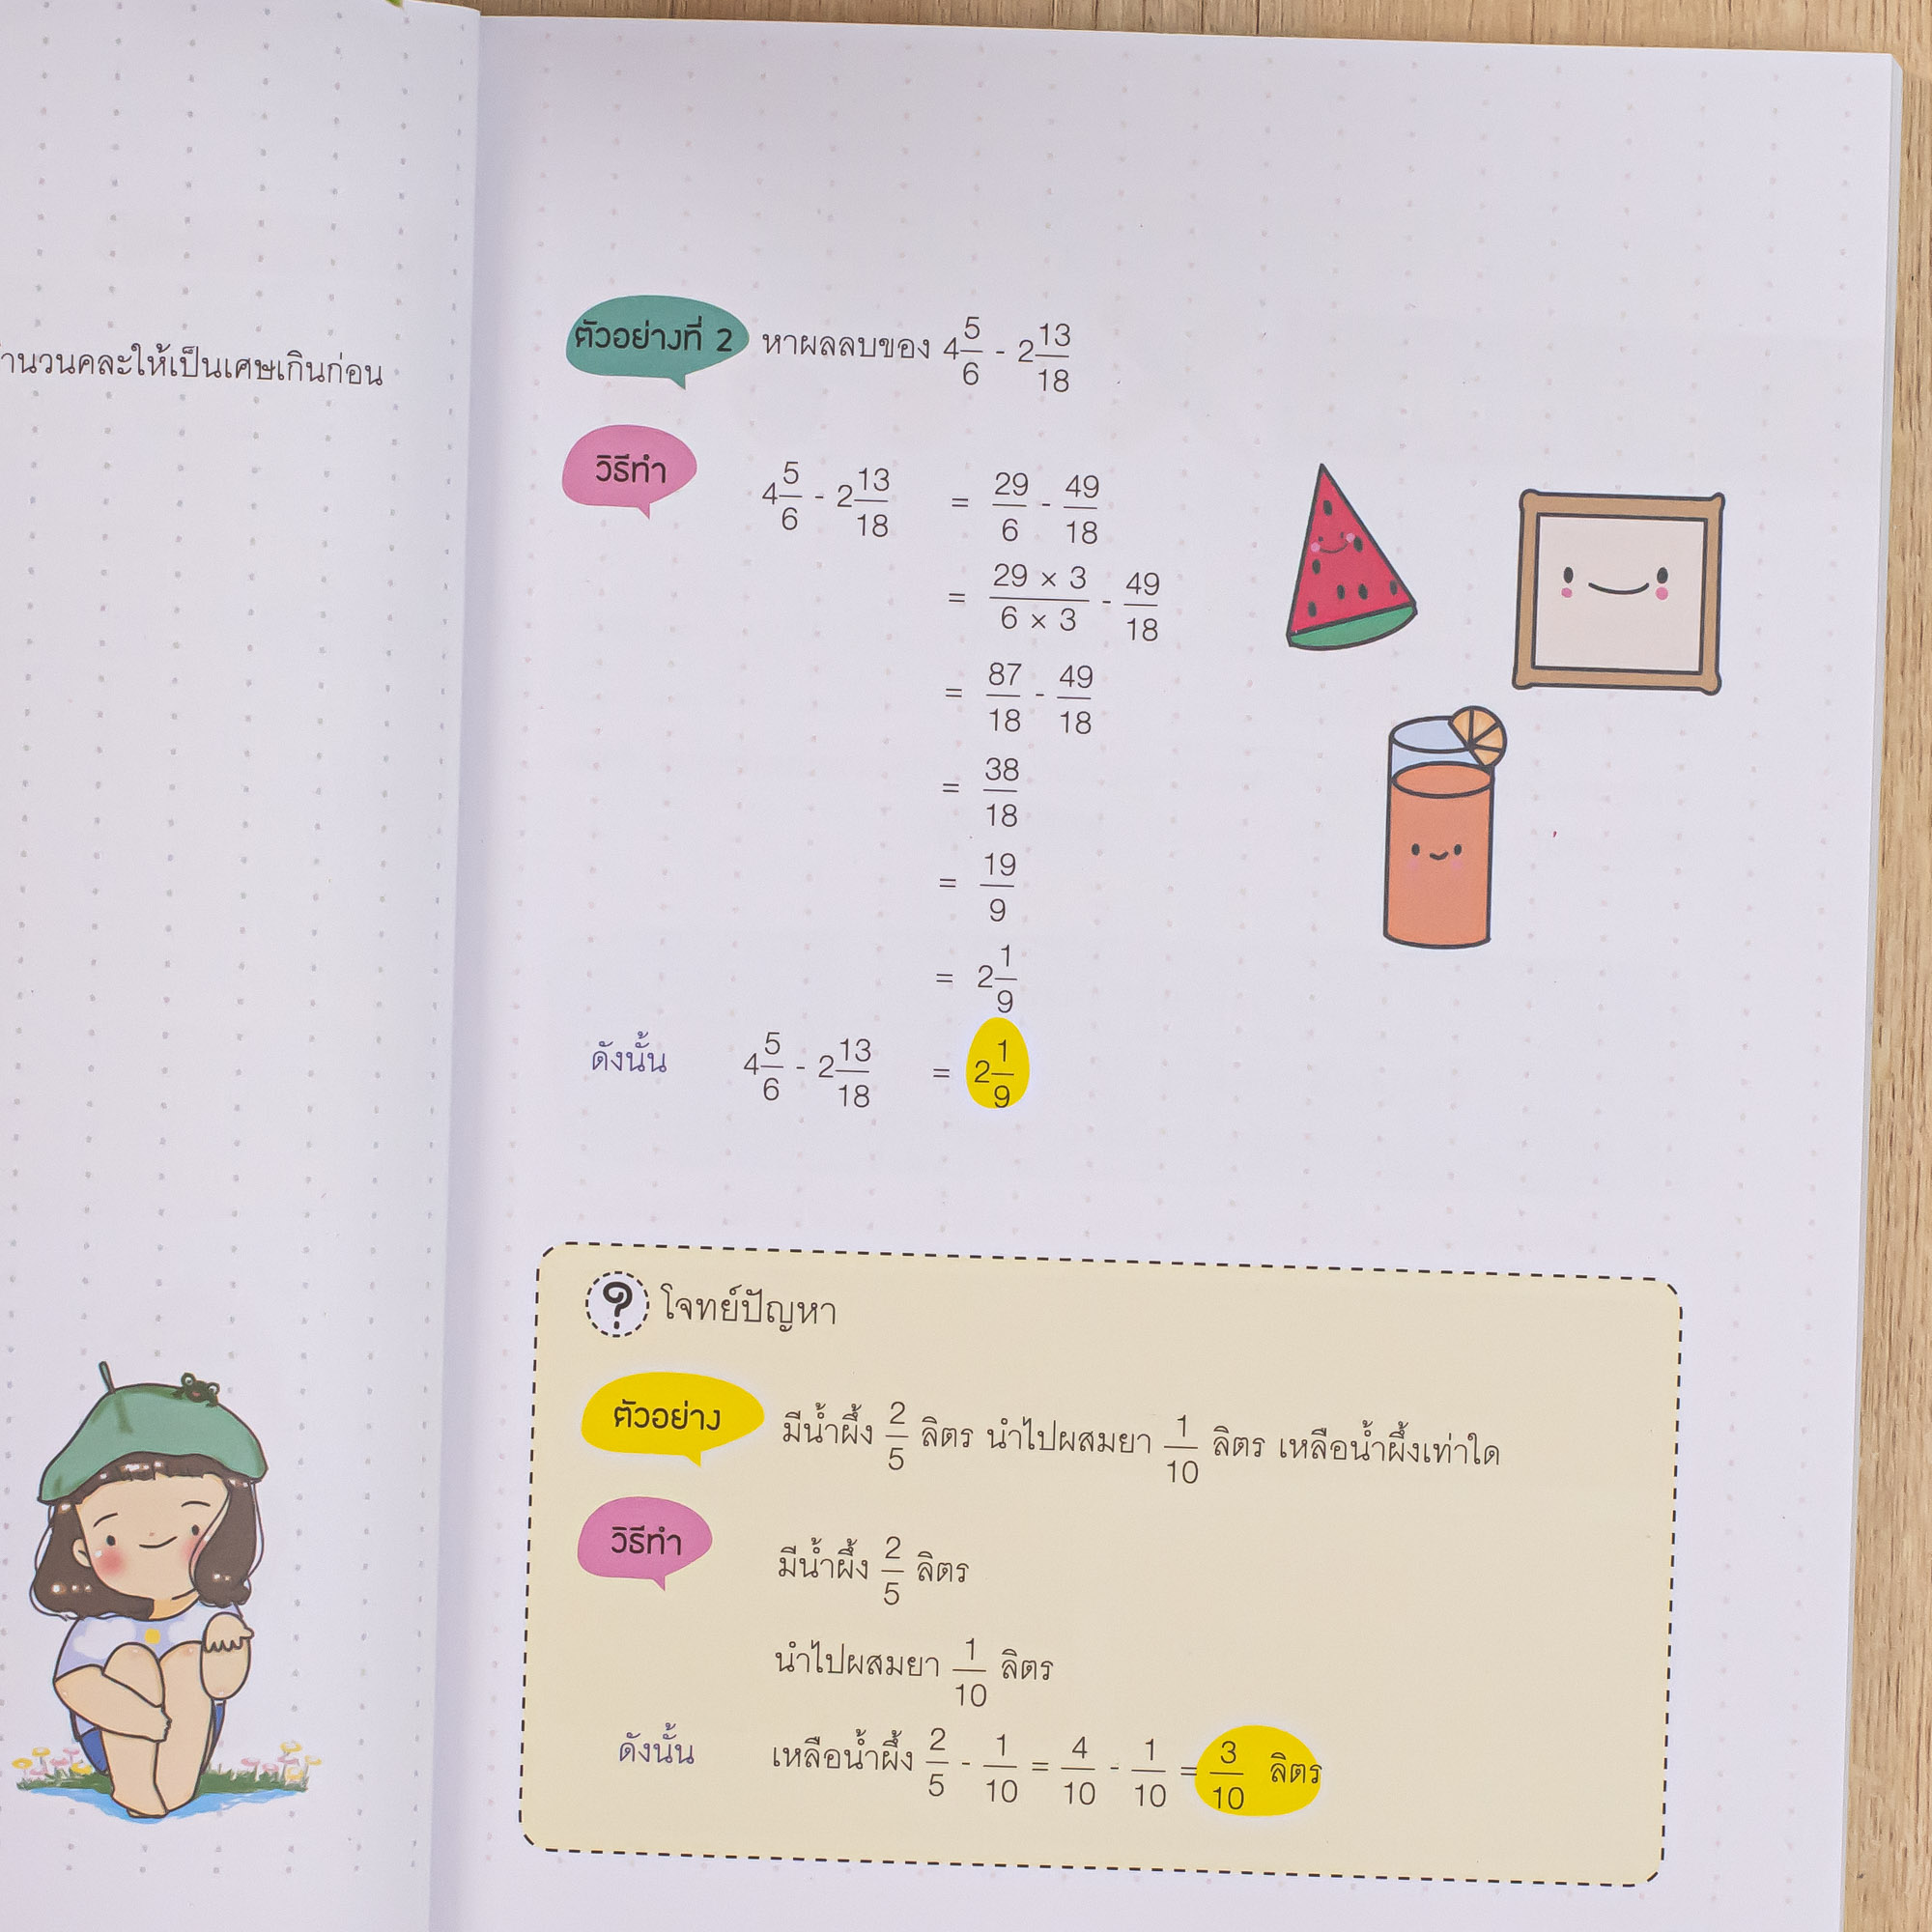 นวนคละให้เป็นเศษเกินก่อน
ตัวอย่างที่ 2 หาผลลบของ 4 5/6 - 2 13/18
วิธีทำ 4 5/6 - 2 13/18 = 29/6 - 49/18
= 29 × 3/6 × 3 - 49/18
= 87/18 - 49/18
= 38/18
= 19/9
= 2 1/9
ดังนั้น 4 5/6 - 2 13/18 = 2 1/9
? โจทย์ปัญหา
ตัวอย่าง มีน้ำผึ้ง 2/5 ลิตร นำไปผสมยา 1/10 ลิตร เหลือน้ำผึ้งเท่าใด
วิธีทำ มีน้ำผึ้ง 2/5 ลิตร
นำไปผสมยา 1/10 ลิตร
ดังนั้น เหลือน้ำผึ้ง 2/5 - 1/10 = 4/10 - 1/10 = 3/10 ลิตร